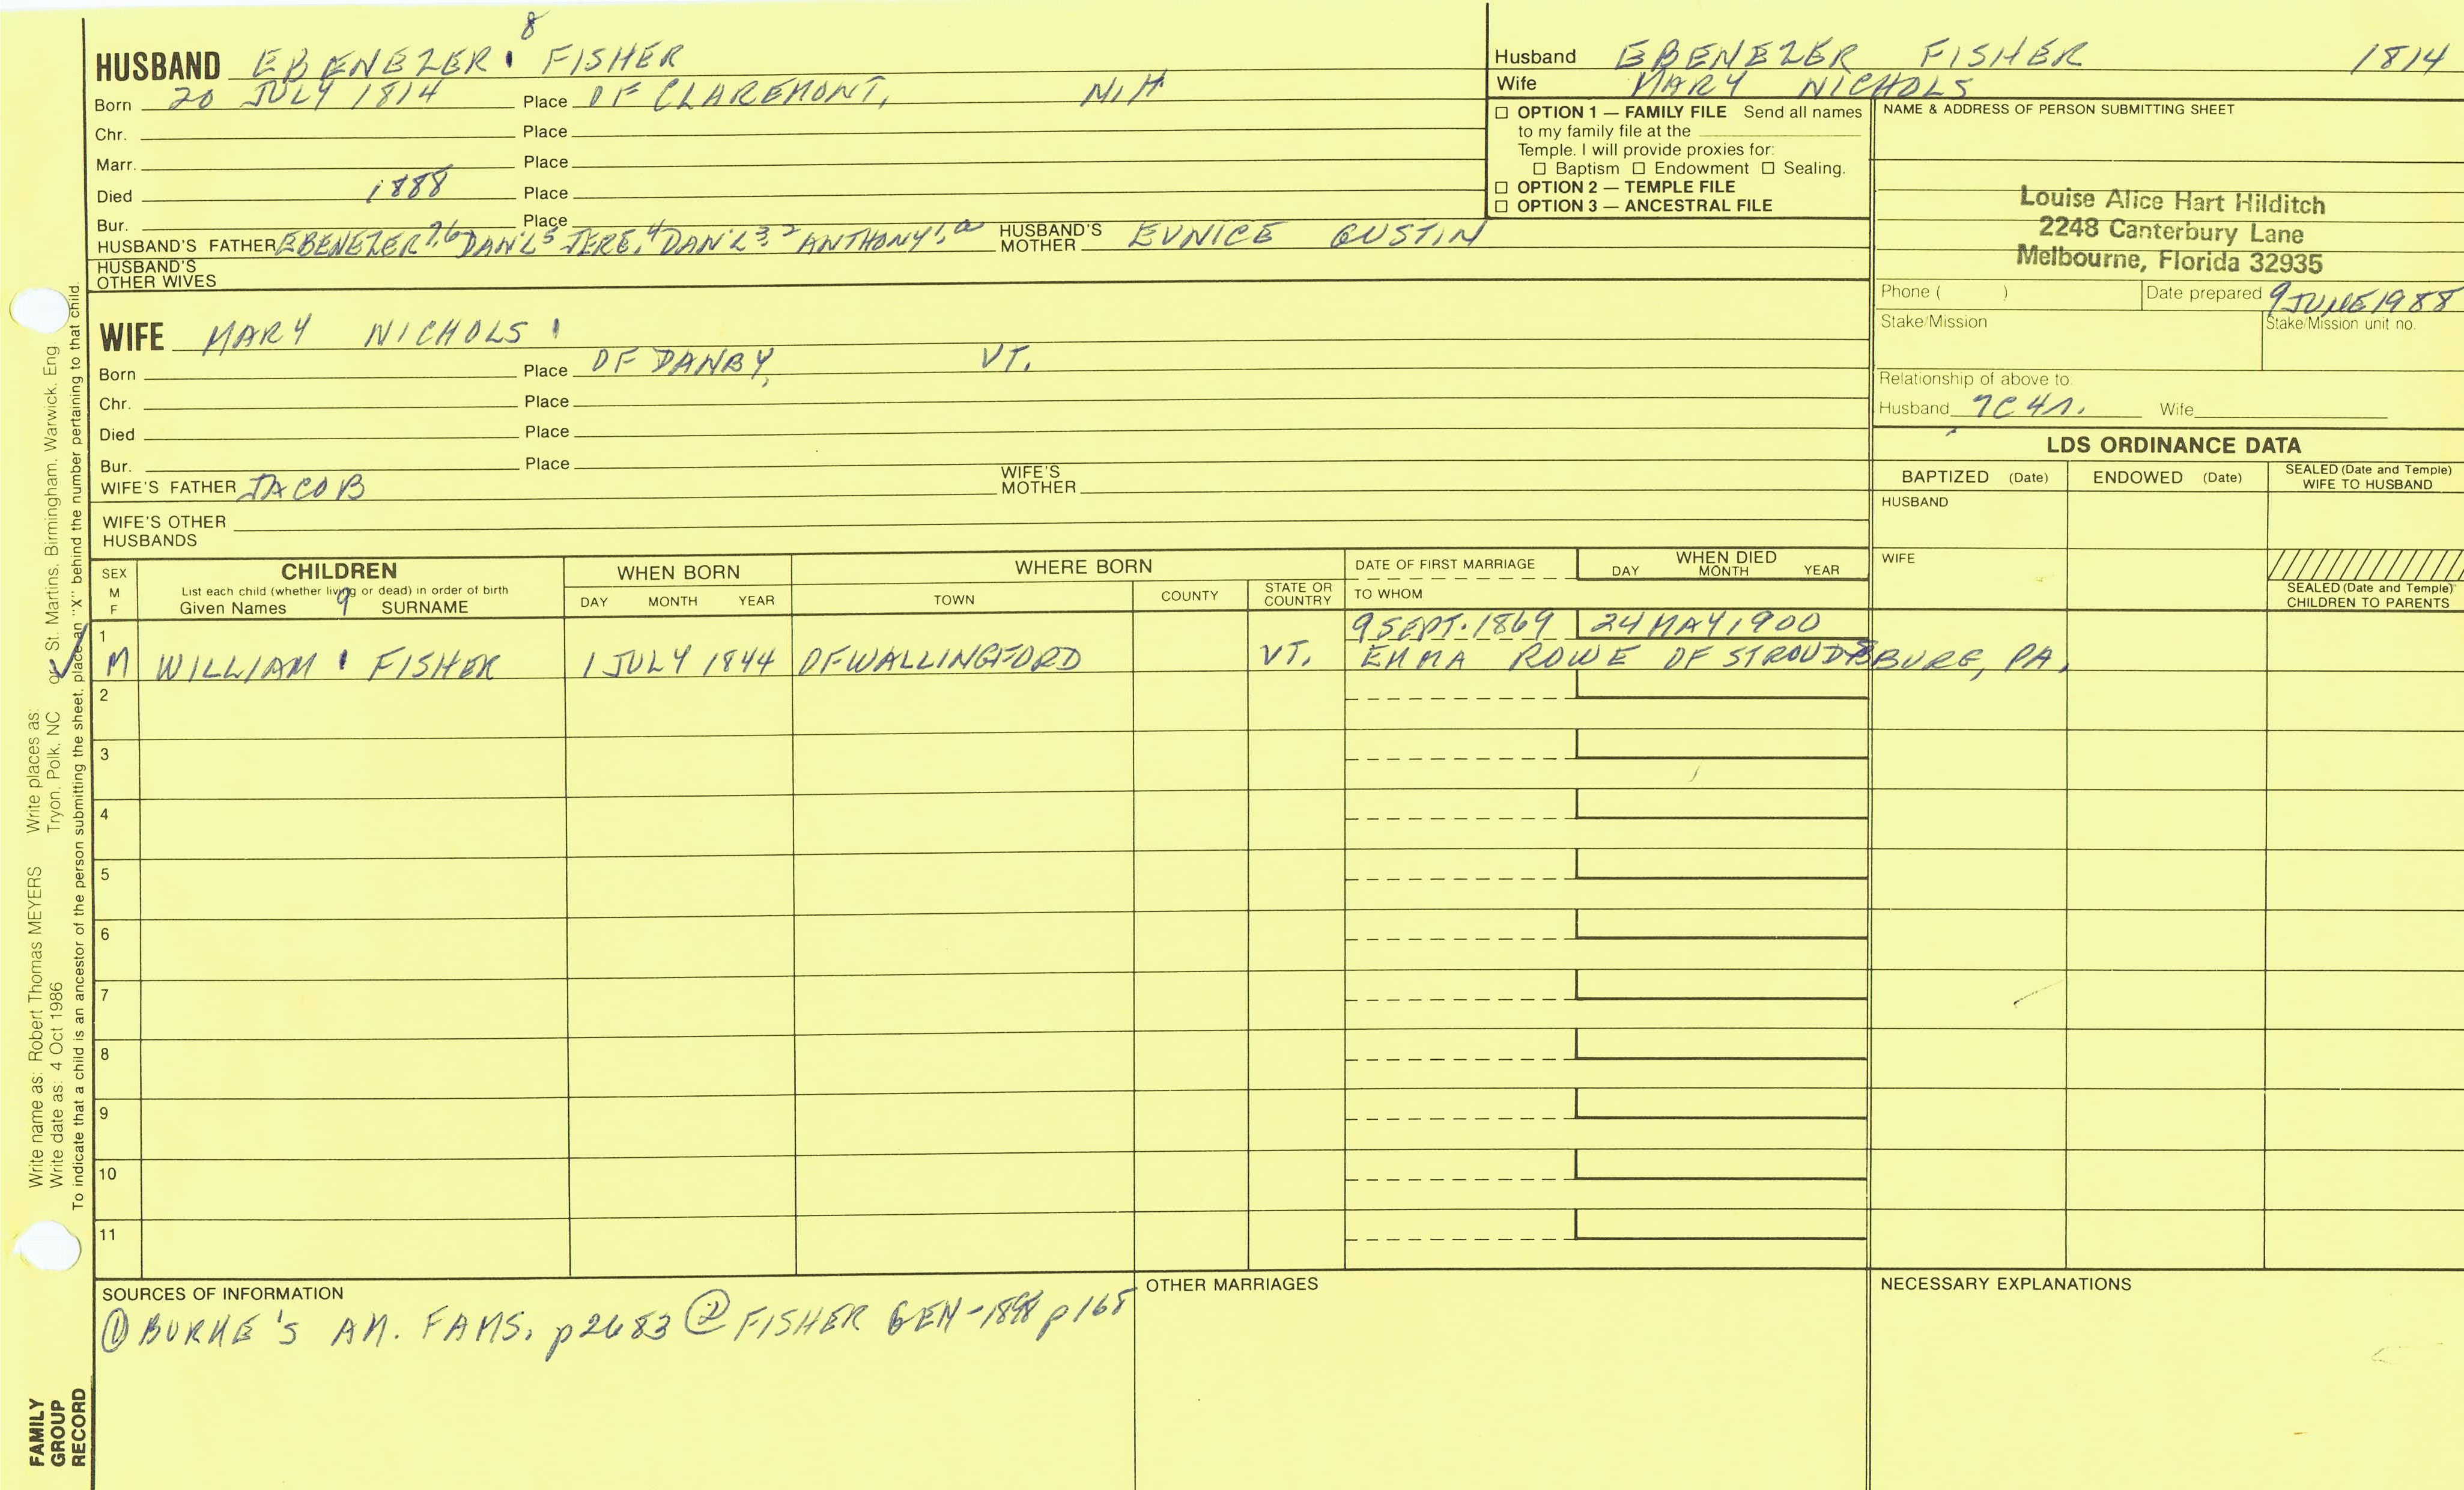 8
HUSBAND EBENEZER FISHER
Born 20 JULY 1814 Place OF CLAREMONT, N.H
Chr. Place
Marr. Place
Died 1888 Place
Bur. Place
HUSBAND'S FATHER EBENEZER 7,6 DAN'L 5 JERE. 4 DAN'L 3, 2 ANTHONY 1, a HUSBAND'S MOTHER EUNICE GUSTIN
HUSBAND'S OTHER WIVES
Husband EBENEZER FISHER 1814
Wife MARY NICHOLS
☐ OPTION 1 — FAMILY FILE Send all names
to my family file at the
Temple. I will provide proxies for:
☐ Baptism ☐ Endowment ☐ Sealing.
☐ OPTION 2 — TEMPLE FILE
☐ OPTION 3 — ANCESTRAL FILE
NAME & ADDRESS OF PERSON SUBMITTING SHEET
Louise Alice Hart Hilditch
2248 Canterbury Lane
Melbourne, Florida 32935
Phone ( ) Date prepared 9 JUNE 1988
Stake/Mission Stake/Mission unit no.
Relationship of above to
Husband 7C4r. Wife
WIFE MARY NICHOLS
Born Place OF DANBY, VT.
Chr. Place
Died Place
Bur. Place
WIFE'S FATHER JACOB WIFE'S MOTHER
WIFE'S OTHER HUSBANDS
LDS ORDINANCE DATA
BAPTIZED (Date) ENDOWED (Date) SEALED (Date and Temple) WIFE TO HUSBAND
HUSBAND
WIFE
SEALED (Date and Temple) CHILDREN TO PARENTS
SEX M F
CHILDREN
List each child (whether living or dead) in order of birth
Given Names 9 SURNAME
WHEN BORN
DAY MONTH YEAR
WHERE BORN
TOWN COUNTY STATE OR COUNTRY
DATE OF FIRST MARRIAGE
TO WHOM
WHEN DIED
DAY MONTH YEAR
1 9 SEPT. 1869 24 MAY 1900
M WILLIAM FISHER 1 JULY 1844 OF WALLINGFORD VT. EMMA ROWE OF STROUDSBURG, PA.
2
3
4
5
6
7
8
9
10
11
SOURCES OF INFORMATION
① BURKE'S AM. FAMS. p2683 ② FISHER GEN-1898 p165
OTHER MARRIAGES
NECESSARY EXPLANATIONS
Write name as: Robert Thomas MEYERS Write places as:
Write date as: 4 Oct 1986 Tryon, Polk, NC or St. Martins, Birmingham, Warwick, Eng
To indicate that a child is an ancestor of the person submitting the sheet, place an "X" behind the number pertaining to that child.
FAMILY
GROUP
RECORD